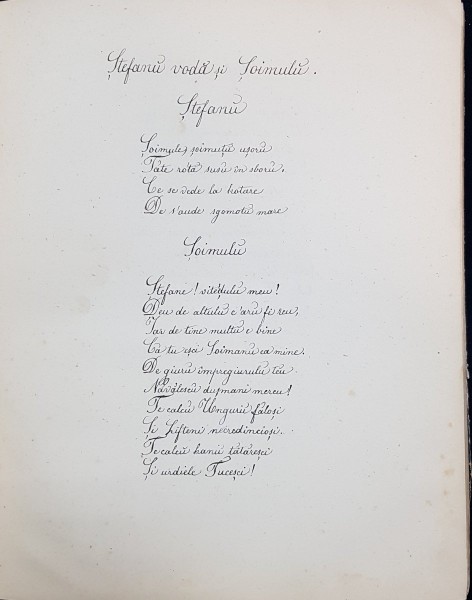 Ștefanŭ vodă și Șoimulŭ.
Ștefanŭ
Șoimule, șoimuțŭ ușorŭ
Fate rótă susŭ in sborŭ,
Ce se vede la hotare
De s'aude sgomotŭ mare
Șoimulŭ
Ștefane! vitéḑulŭ meu!
Ḑeu de altulŭ c'arŭ fi reu,
Iar de tine multŭ e bine
Că tu ești Șoimanŭ ca mine.
De giurŭ impregiurulŭ tĕu
Năvălescŭ dușmani mereu!
Te calcŭ Ungurii făloși
Și Lifteni necredincioși.
Te calcŭ hanii tătărești
Și urdiele Turcești!